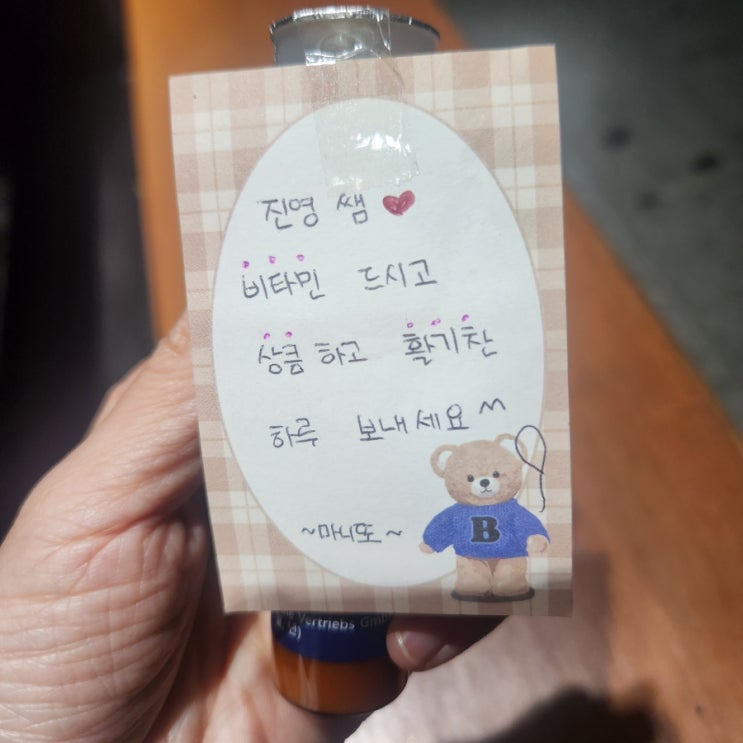 진영 쌤 ♥
비타민 드시고
상큼 하고 활기찬
하루 보내세요 ^^
~마니또~
B
Vertriebs Gmb